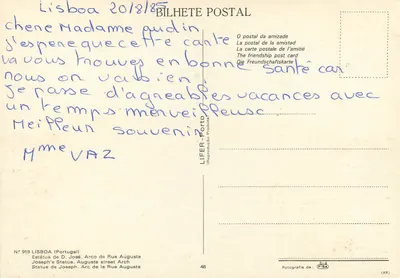 Lisboa 20/8/85
BILHETE POSTAL
chene Madame audin
j'esperequecette carte
la vous trouves en bonne santé car
nous on va bien.
Je passe d'agreables vacances avec
un temps merveilleuse
Meilleur souvenir
Mme VAZ
O postal da amizade
La postal de la amistad
La carte postale de l'amitié
The friendship post card
Die Freundschaftskarte
LIFER-Porto
Nº 919 LISBOA (Portugal)
Estátua de D. José. Arco da Rua Augusta
Joseph's Statue. Augusta street Arch
Statue de Joseph. Arc de la Rue Augusta
46
Fotografia de: